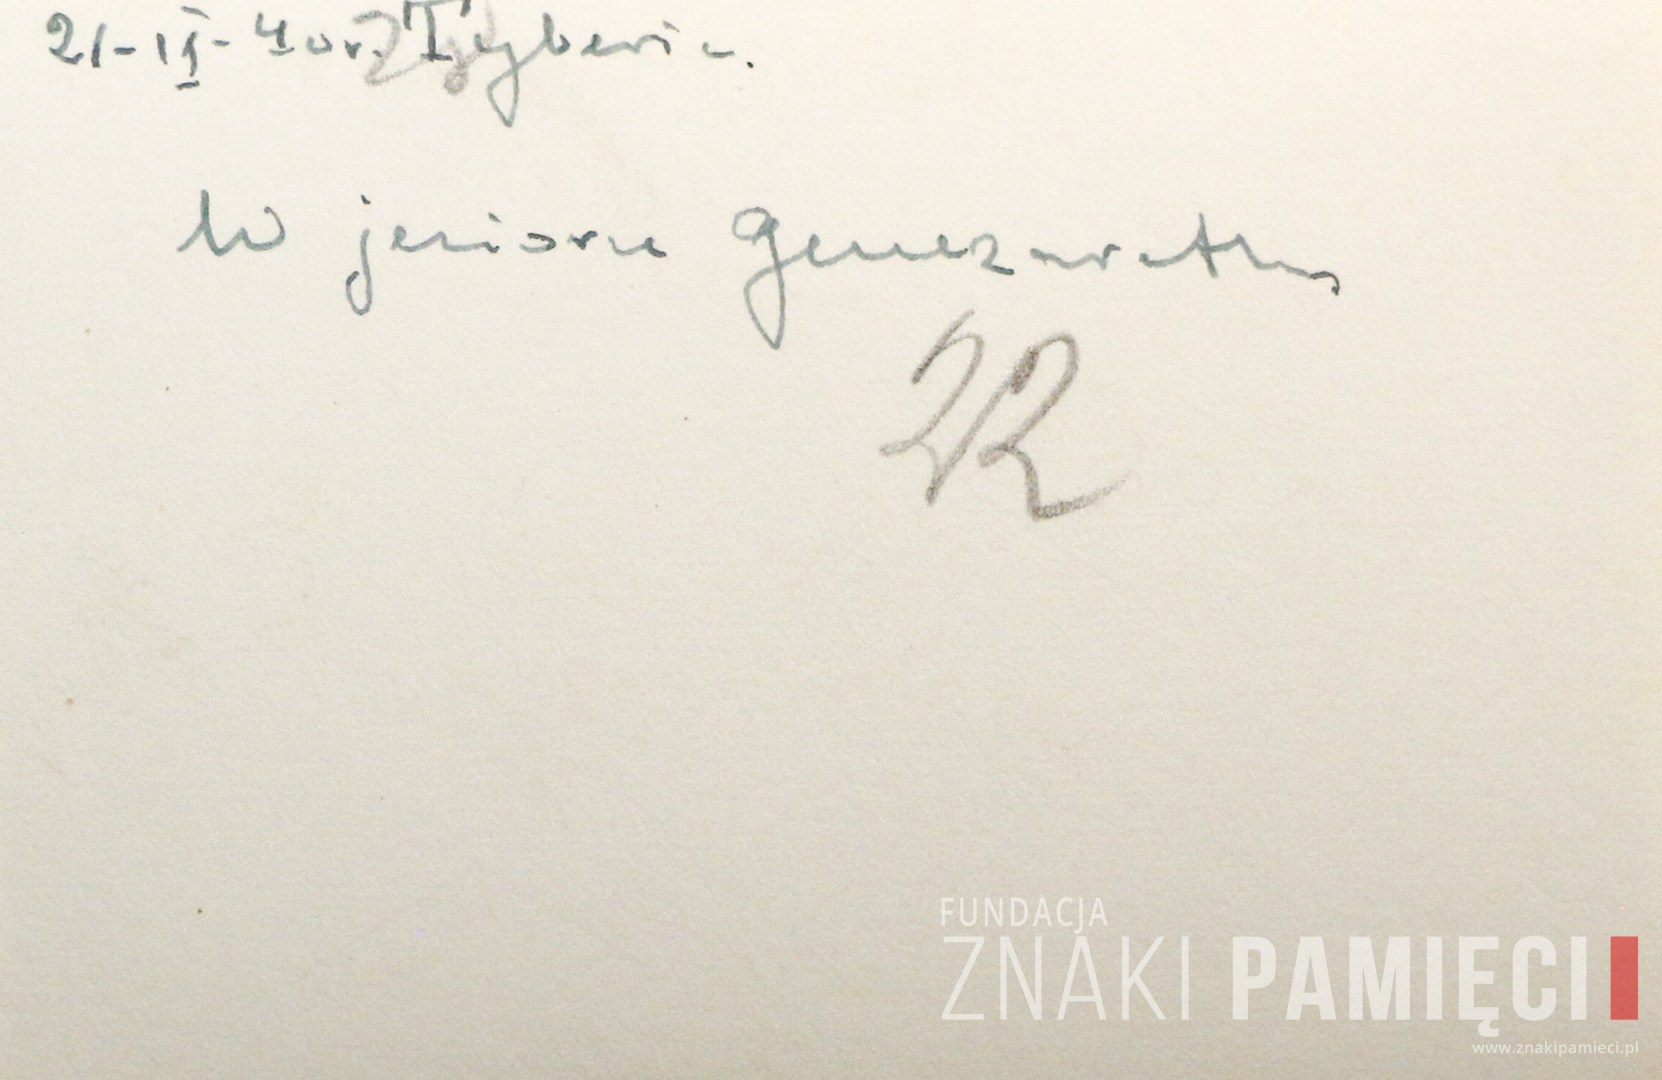 21-II-40r. Tyberia.
W jeziorze Genezareth,
22
FUNDACJA
ZNAKI PAMIĘCI
www.znakipamieci.pl